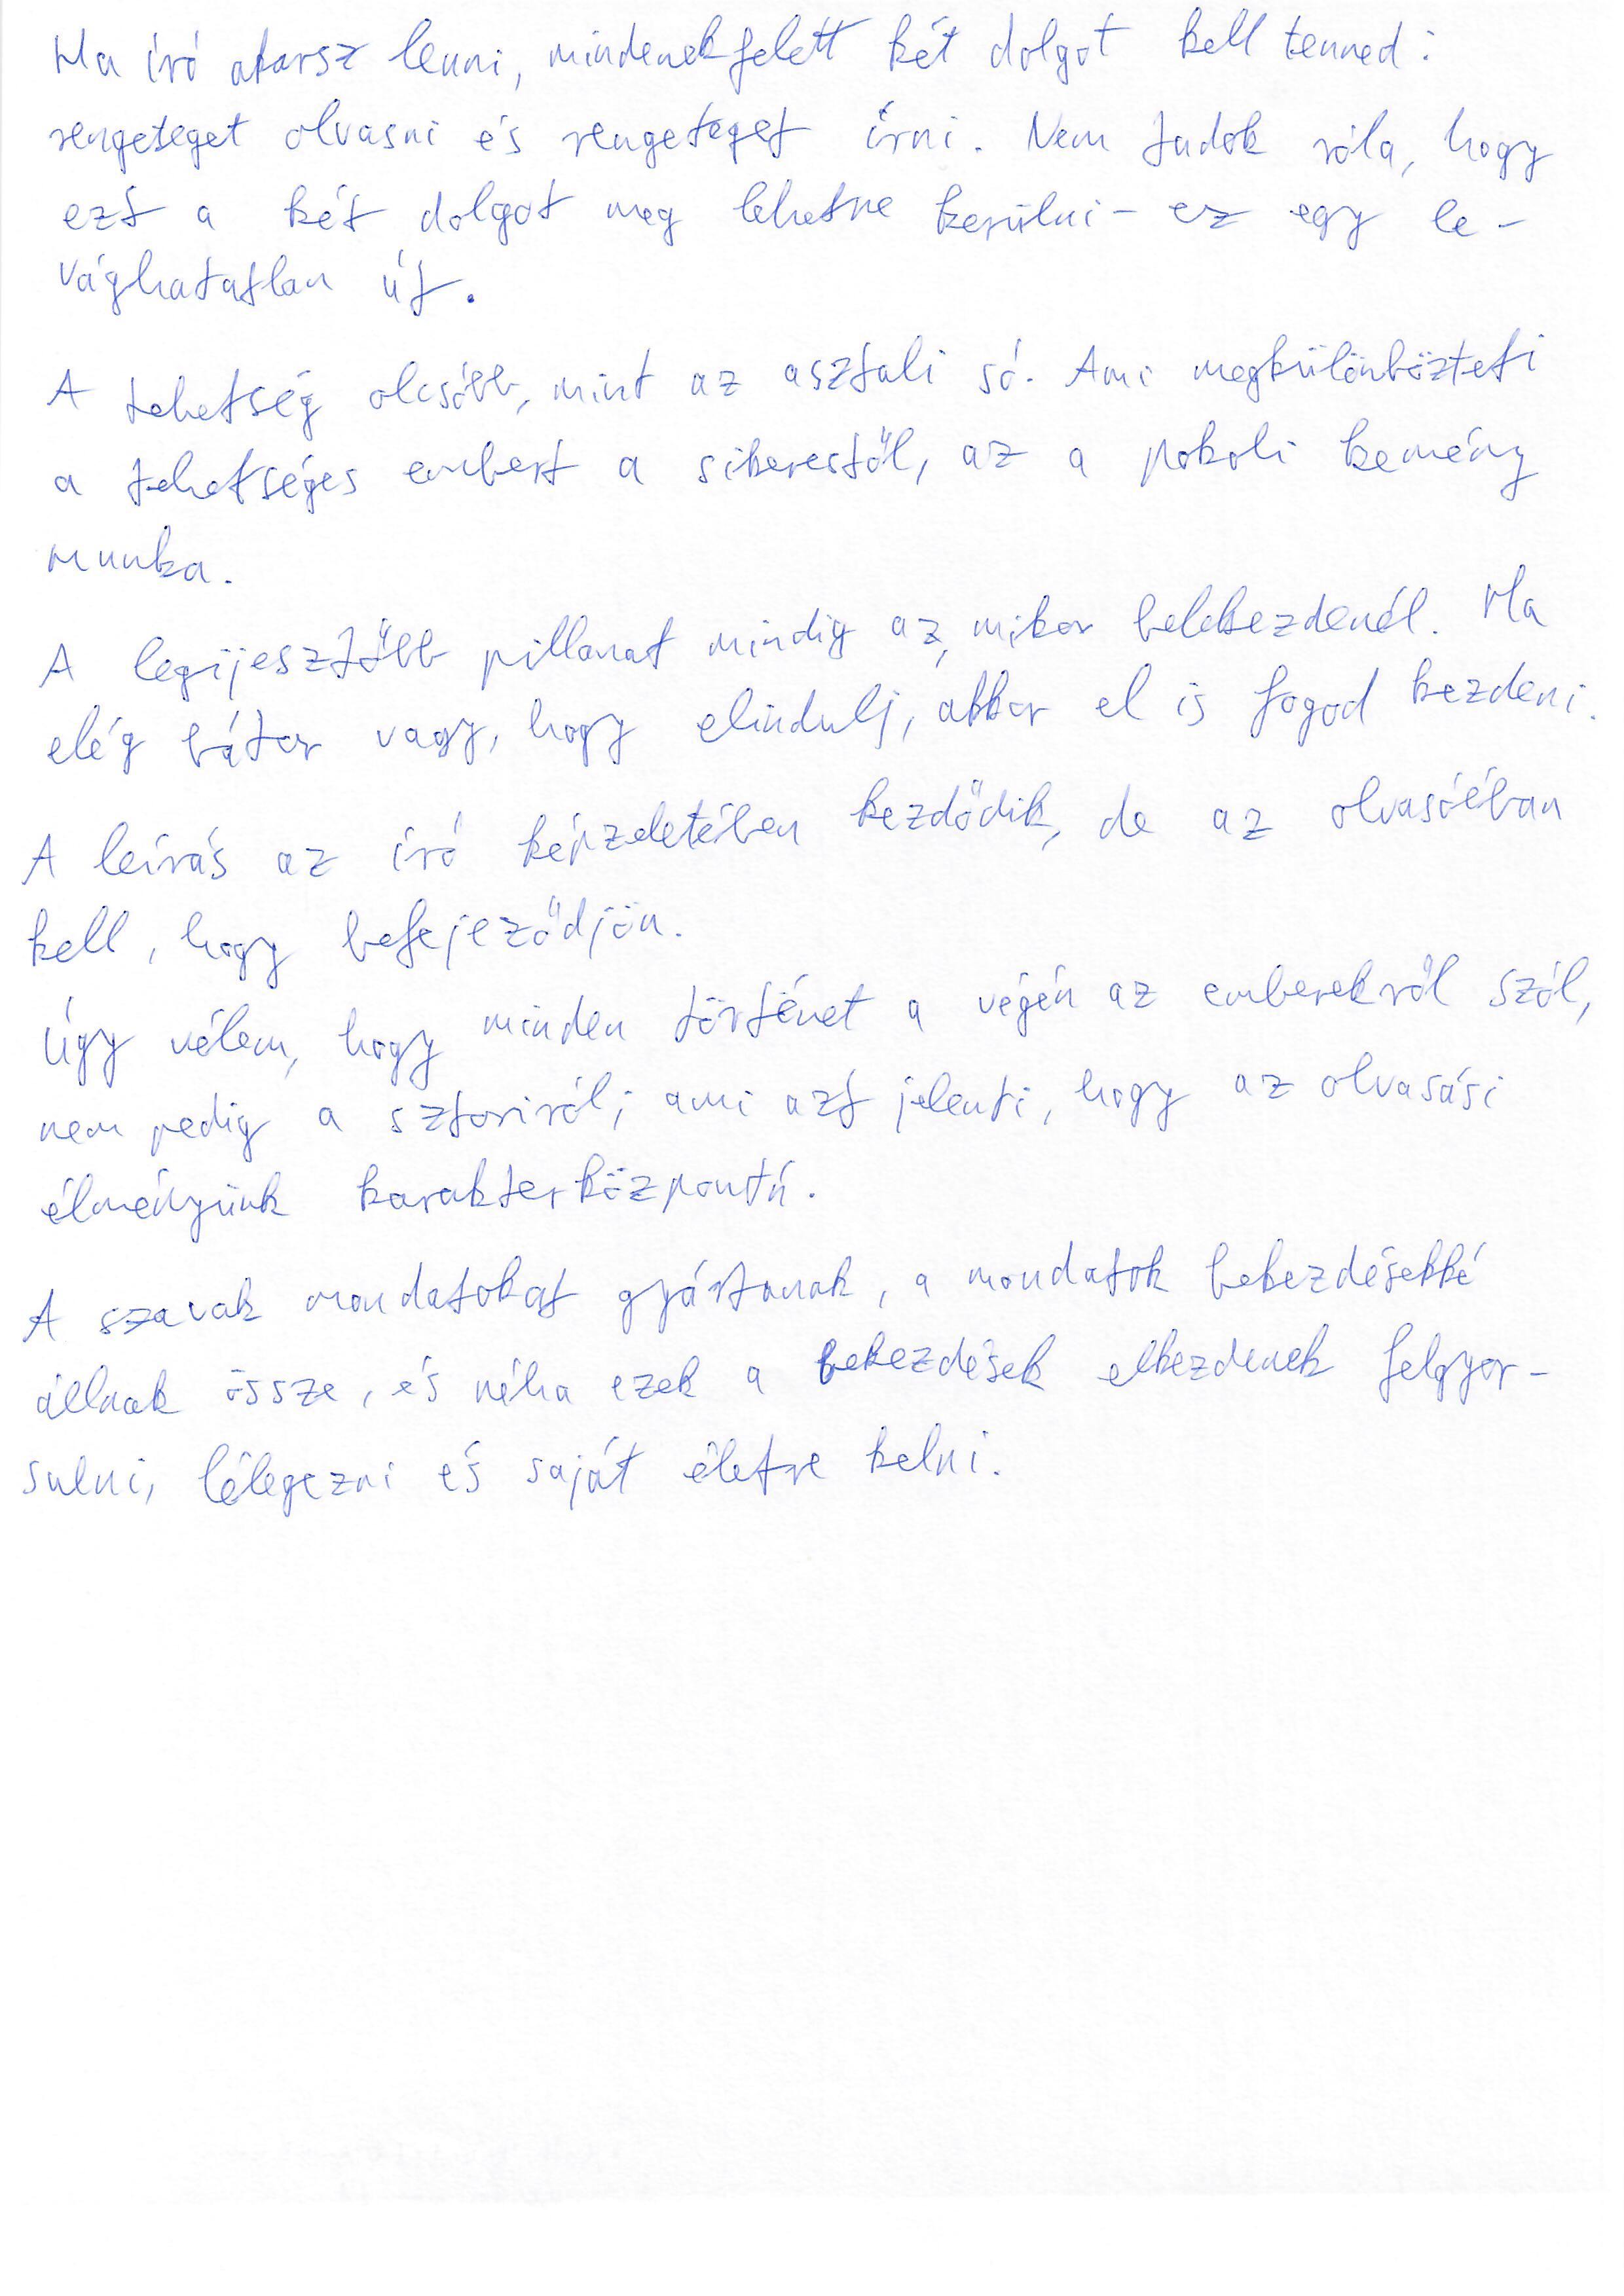 Ha író akarsz lenni, mindenekfelett két dolgot kell tenned:
rengeteget olvasni és rengeteget írni. Nem tudok róla, hogy
ezt a két dolgot meg lehetne kerülni - ez egy le-
vághatatlan út.
A tehetség olcsóbb, mint az asztali só. Ami megkülönbözteti
a tehetséges embert a sikerestől, az a pokoli kemény
munka.
A legijesztőbb pillanat mindig az, mikor belekezdenél. Ha
elég bátor vagy, hogy elindulj, akkor el is fogod kezdeni.
A leírás az író képzeletében kezdődik, de az olvasóéban
kell, hogy befejeződjön.
Úgy vélem, hogy minden történet a végén az emberekről szól,
nem pedig a sztoriról; ami azt jelenti, hogy az olvasási
élményünk karakterközpontú.
A szavak mondatokat gyártanak, a mondatok bekezdésekké
állnak össze, és néha ezek a bekezdések elkezdenek felgyor-
sulni, lélegezni és saját életre kelni.